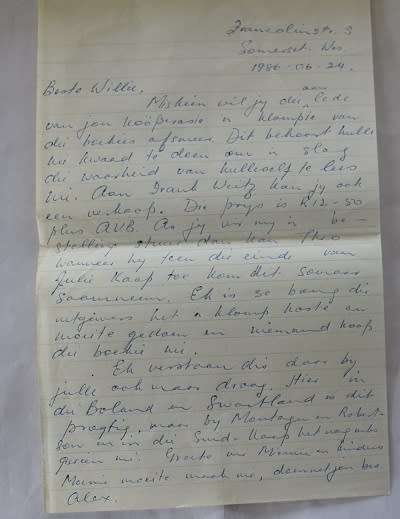 Francolinstr. 3
Somerset-Wes
1986-06-24.
Beste Willie,
Miskien wil jy die aan lede
van jou koöperasie 'n klompie van
die boekies afsmeer. Dit behoort hulle
nie kwaad te doen om 'n slag
die waarheid van hulleself te lees
nie. Aan Frank kan jy ook
een verkoop. Die prys is R12-50
plus AVB. As jy vir my 'n be-
stelling stuur dan kan Theo
wanneer hy teen die einde van
Julie Kaap toe kom dit somaar
saamneem. Ek is so bang die
uitgewers het 'n klomp koste en
moeite gedoen en niemand koop
die boekie nie.
Ek verstaan dis daar by
julle ook maar droog. Hier in
die Boland en Swartland is dit
pragtig, maar by Montagu en Robert-
son en in die Suid-Kaap het nog niks
gereën nie. Groete vir en kinders
moeite werk nie, jou
Alex.